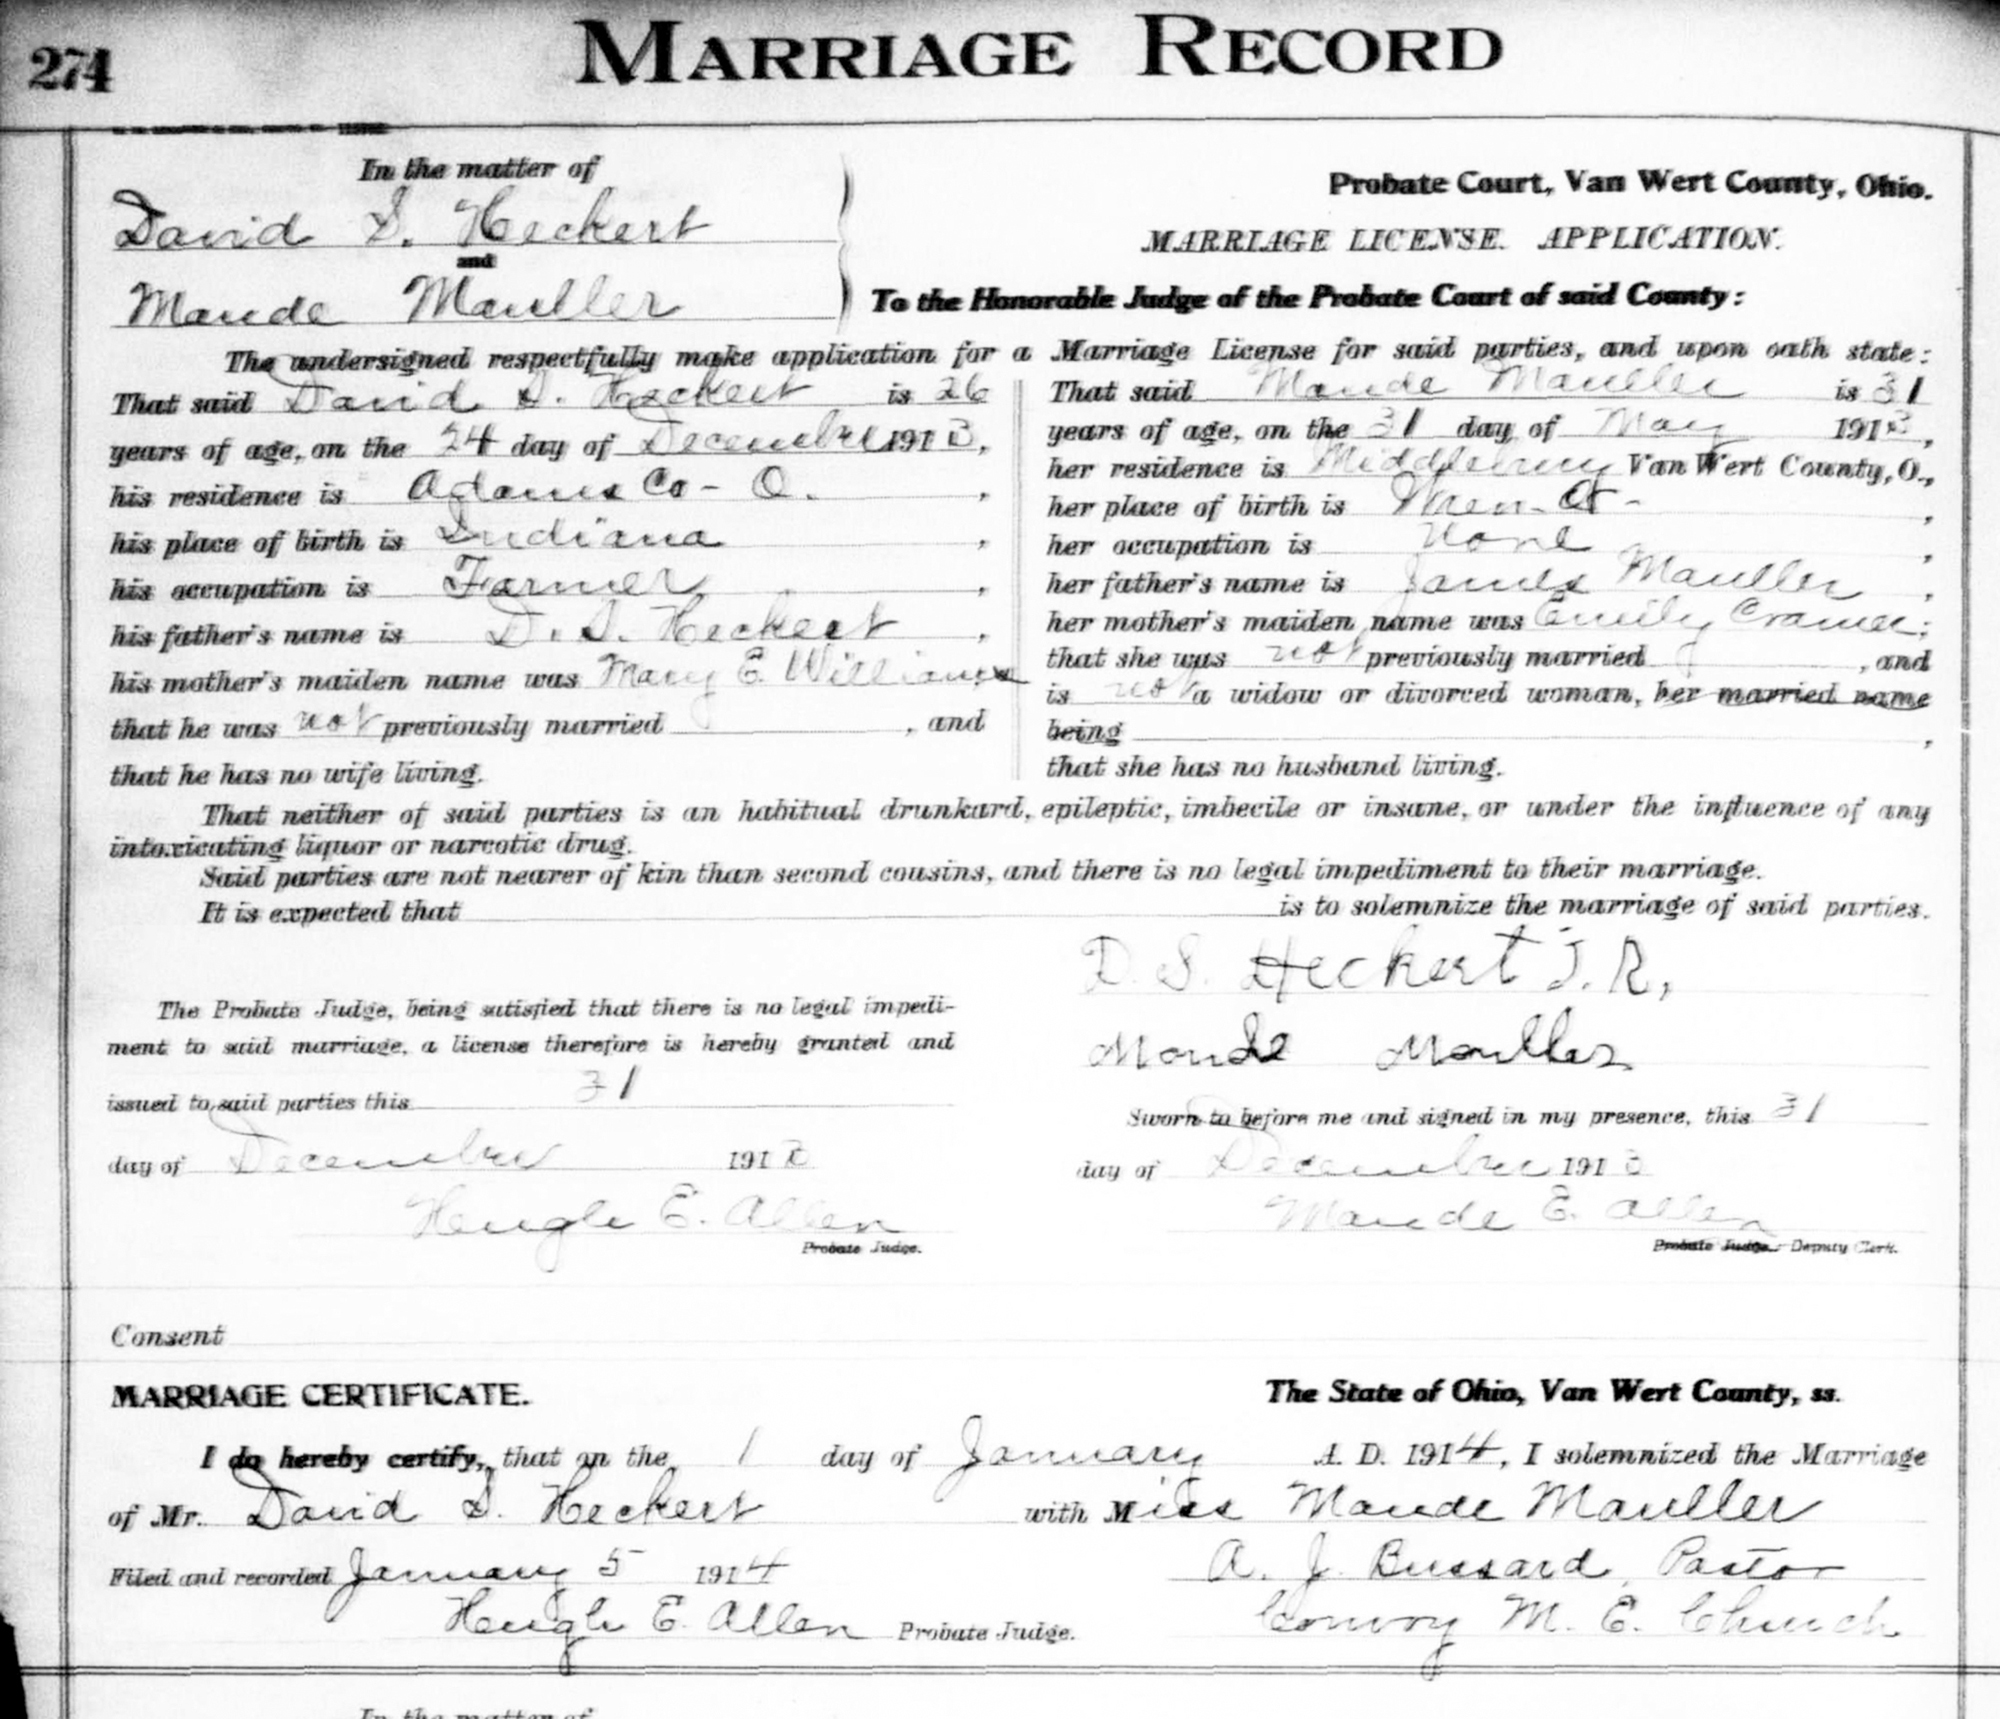 274
MARRIAGE RECORD
In the matter of
David S. Heckert
and
Maude Mauller
Probate Court, Van Wert County, Ohio.
MARRIAGE LICENSE. APPLICATION.
To the Honorable Judge of the Probate Court of said County:
The undersigned respectfully make application for a Marriage License for said parties, and upon oath state:
That said David S. Heckert is 26
years of age, on the 24 day of December 1913,
his residence is Adams Co - O.,
his place of birth is Indiana,
his occupation is Farmer,
his father's name is D. S. Heckert,
his mother's maiden name was Mary E. Williams
that he was not previously married , and
that he has no wife living.
That said Maude Mauller is 31
years of age, on the 31 day of May 1913,
her residence is Middlebury Van Wert County, O.,
her place of birth is
her occupation is None,
her father's name is James Mauller,
her mother's maiden name was Emily Cramer;
that she was not previously married , and
is not a widow or divorced woman, her married name
being ,
that she has no husband living.
That neither of said parties is an habitual drunkard, epileptic, imbecile or insane, or under the influence of any
intoxicating liquor or narcotic drug.
Said parties are not nearer of kin than second cousins, and there is no legal impediment to their marriage.
It is expected that is to solemnize the marriage of said parties.
D. S. Heckert J.R,
Maude Mauller
The Probate Judge, being satisfied that there is no legal impedi-
ment to said marriage, a license therefore is hereby granted and
issued to said parties this 31
day of December 1913
Hugh E. Allen
Probate Judge.
Sworn to before me and signed in my presence, this 31
day of December 1913
Maude E. Allen
Probate Judge. Deputy Clerk.
Consent
MARRIAGE CERTIFICATE.
The State of Ohio, Van Wert County, ss.
I do hereby certify, that on the 1 day of January A. D. 1914, I solemnized the Marriage
of Mr. David S. Heckert with Miss Maude Mauller
Filed and recorded January 5 1914
A. J. Bussard, Pastor
Hugh E. Allen Probate Judge.
Convoy M. E. Church
In the matter of